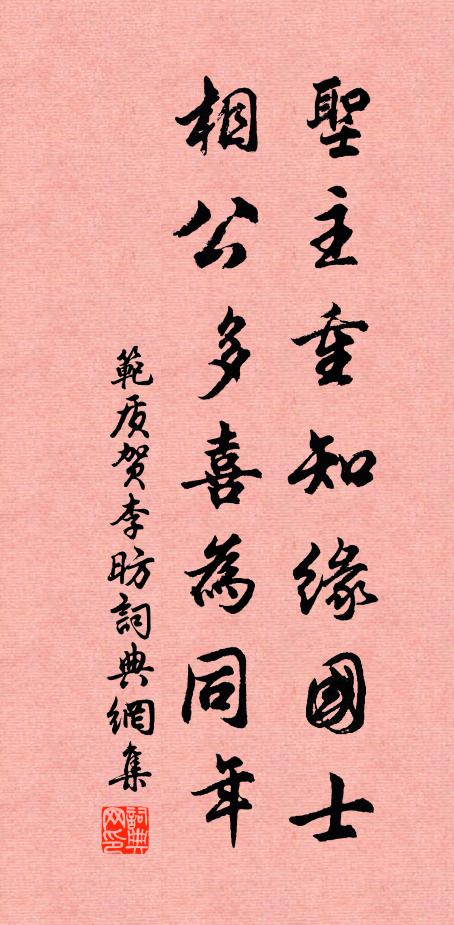 聖主重知緣國士
相公多喜為同年
範质贺李昉詞典網集
詞典网印